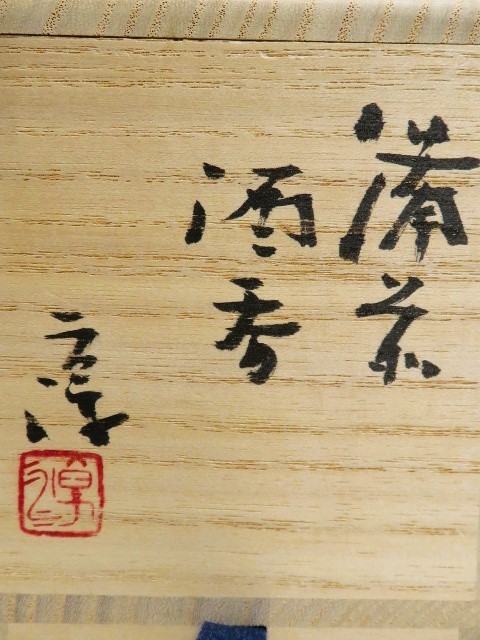 備前
酒呑
淳
淳